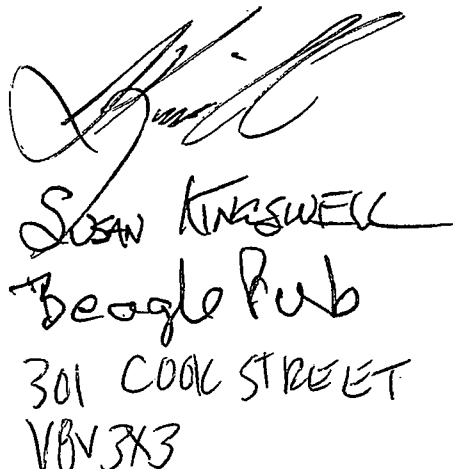 SUSAN KINGSWELL
Beagle Pub
301 COOK STREET
V8V 3X3